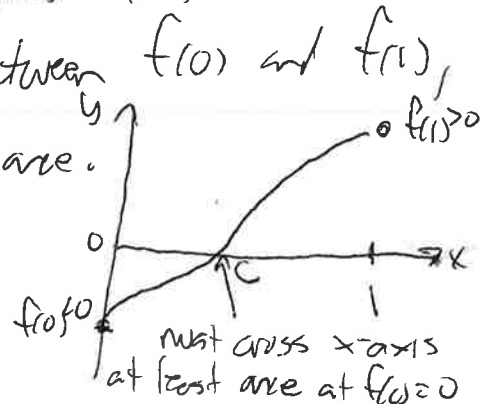 between f(0) and f(1),
y
f(1)>0
are.
0
x
c
f(0)<0
1
must cross x-axis
at least one at f(c)=0